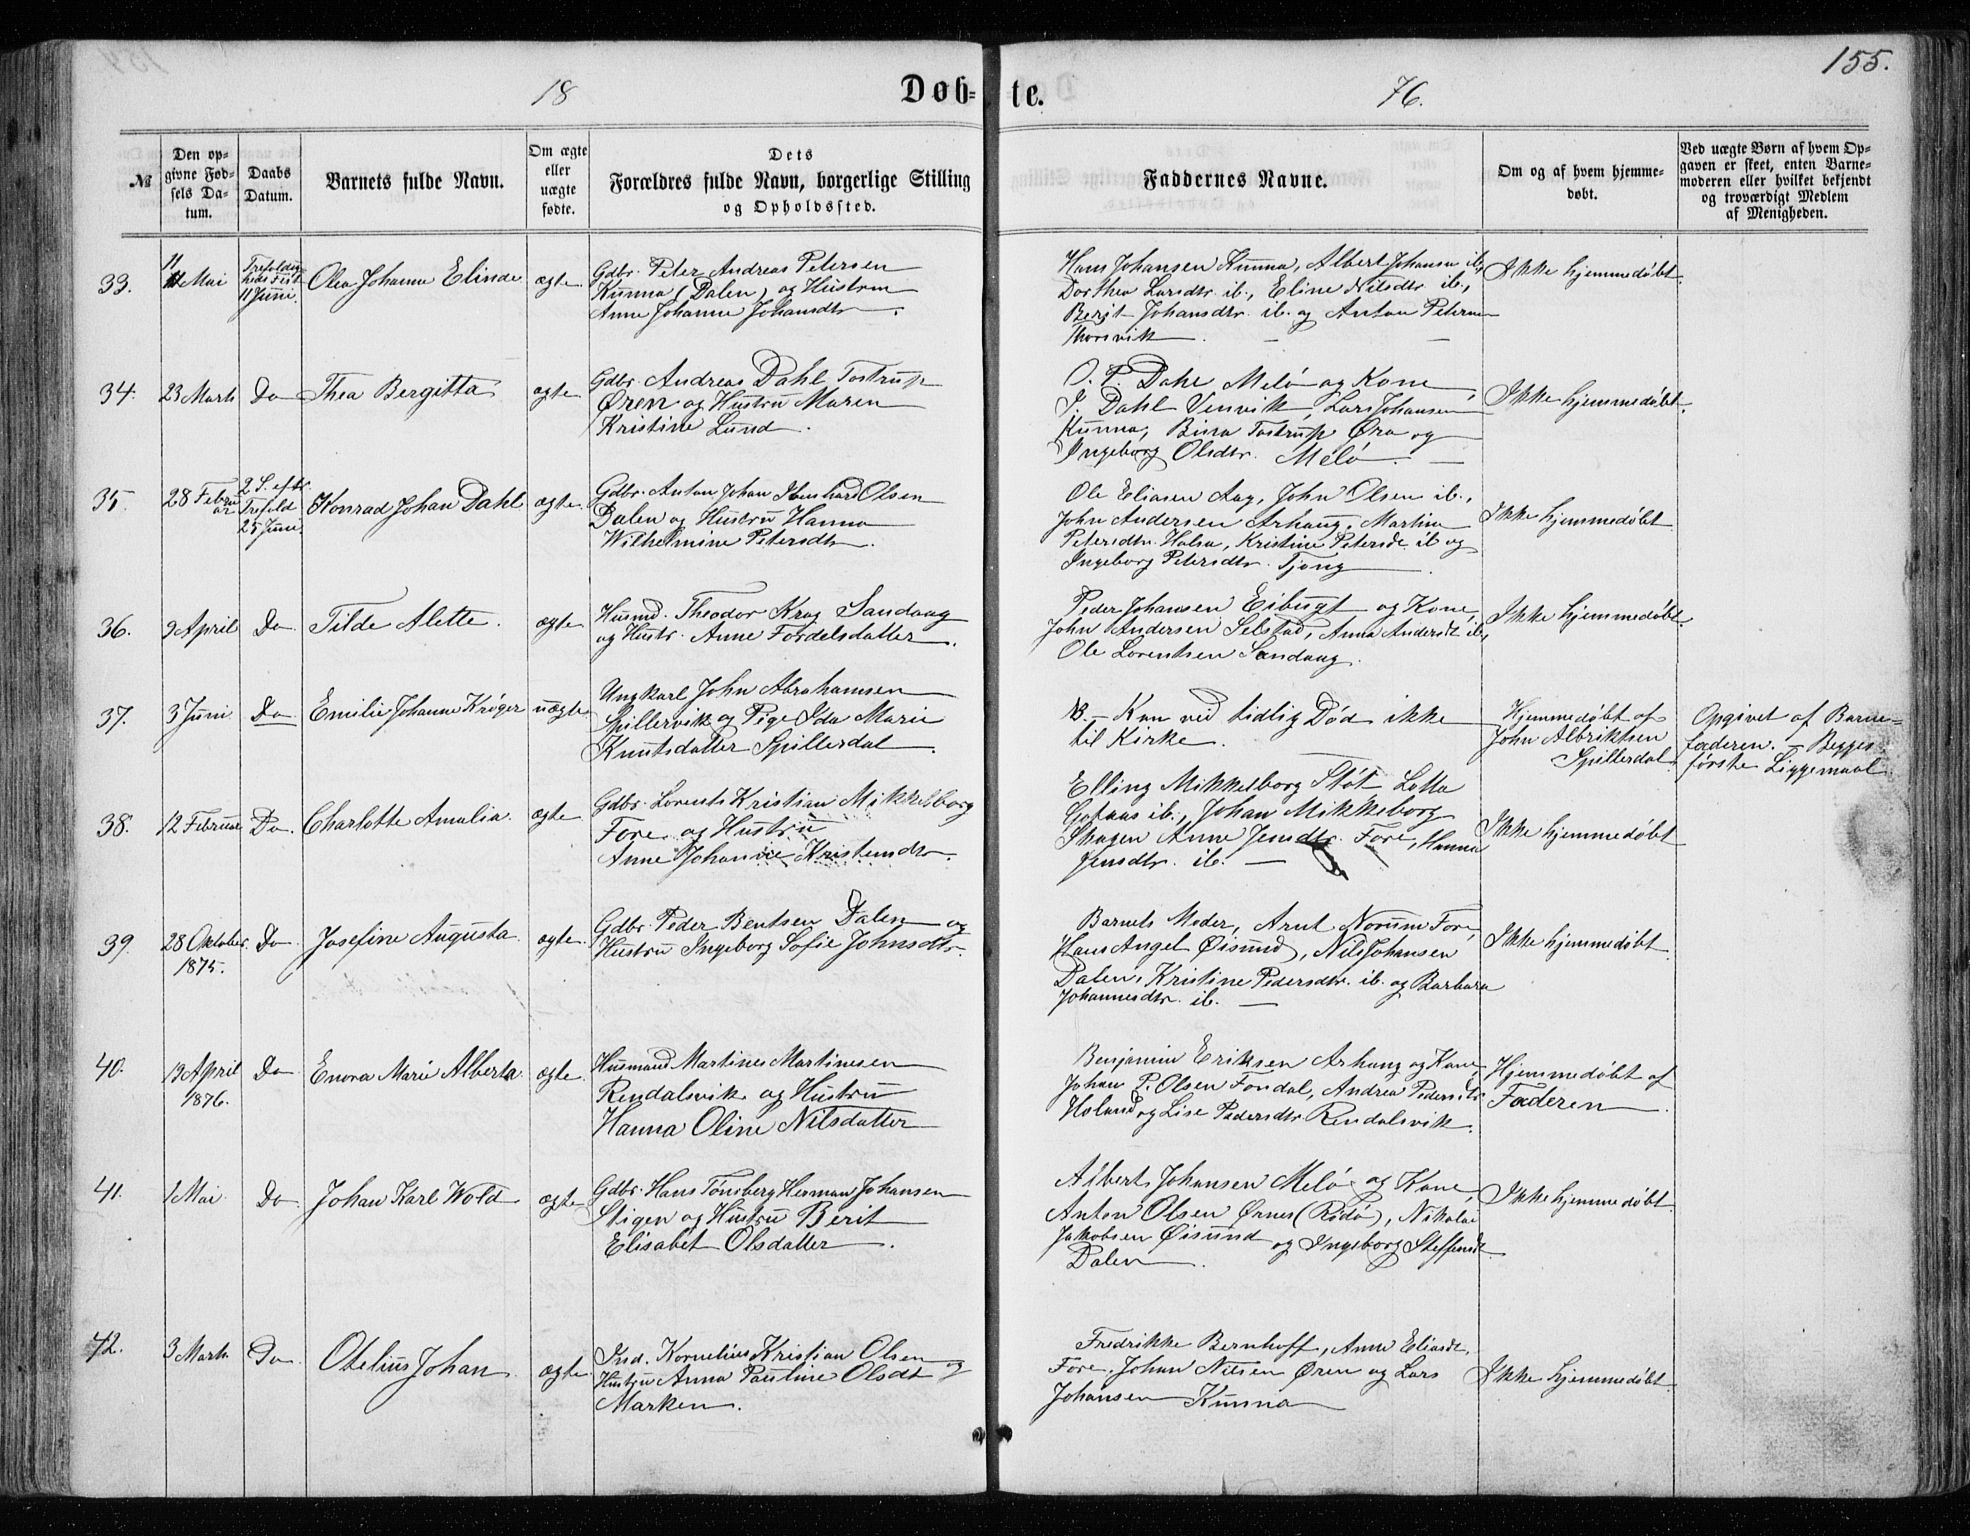 155.
18 Døb- te. 76.
№
Den op-
givne Fød-
sels Da-
tum.
Daabs
Datum.
Barnets fulde Navn.
Om ægte
eller
uægte
fødte.
Dets
Forældres fulde Navn, borgerlige Stilling
og Opholdssted.
Faddernes Navne.
Om og af hvem hjemme-
døbt.
Ved uægte Børn af hvem Op-
gaven er skeet, enten Barne-
moderen eller hvilket bekjendt
og troværdigt Medlem
af Menigheden.
33.
11 Mai
Trefoldig-
heds Fest
11 Juni.
Olea Johanne Elinde
ægte
Gdbr. Peter Andreas Petersen
Kunna (Dalen) og Hustru
Anne Johanne Johansdtr.
Hans Johansen Kunna, Albert Johansen ib,
Dorthea Larsdtr. ib., Eline Nilsdtr ib.,
Berit Johansdtr. ib. og Anton Petersen
Thorsvik.
Ikke hjemmedøbt.
34.
23 Marts
Do
Thea Bergitta
ægte
Gdbr. Andreas Dahl Tostrup
Øren og Hustru Maren
Kristine Lund.
O. P. Dahl Melö og Kone,
J. Dahl Venvik, Lars Johansen
Kunna, Tostrup Øra og
Ingeborg Olsdtr. Melö.
Ikke hjemmedøbt.
35.
28 Febru
ar
2 S. eftr.
Trefold
25 Juni.
Konrad Johan Dahl
ægte
Gdbr. Anton Johan Olsen
Dalen og Hustru Hanna
Wilhelmine Petersdtr.
Ole Eliasen Aag, John Olsen ib.,
John Andersen Arhaug, Martina
Petersdtr. Halsa, Kristine Petersd. ib og
Ingeborg Petersdtr. Tjong.
Ikke hjemmedøbt
36.
9 April
Do
Tilde Alette.
ægte
Husmd. Theodor Krog Sandaag
og Hustr. Anne Fordelsdatter.
Peder Johansen Eibugt og Kone,
John Andersen Selstad, Anna Andersdt ib,
Ole Lorentsen Sandaag.
Ikke hjemmedøbt.
37.
3 Juni
Do
Emilie Johanne Kröger
uægte
Ungkarl John Abrahamsen
Spillervik og Pige Ida Marie
Knutsdatter Spillerdal.
NB. – Kom ved tidlig Død ikke
til Kirke.
Hjemmedøbt af
John Albriktsen
Spillerdal.
Opgivet af Barne-
faderen. – Begges
første Liggemaal.
38.
12 Februar
Do.
Charlotte Amalia.
ægte
Gdbr. Lorents Kristian Mikkelborg
Fore og Hustru
Anne Johanne Kristensdtr.
Elling Mikkelborg Støt Lotta
ib., Johan Mikkelborg
Skagen Anne Jensdtr. Fore, Hanna
Jensdtr. ib.
Ikke hjemmedøbt
39.
28 Oktober.
1875.
Do
Josefine Augusta.
ægte.
Gdbr. Peder Bentsen Dalen og
Hustru Ingeborg Sofie Johnsdtr.
Barnets Moder, Arnt Norum Fore,
Hans Angel Øisund, Nils Johansen
Dalen, Kristine Pedersdtr. ib. og Barbara
Johannesdtr. ib.
Ikke hjemmedøbt
40.
19 April
1876.
Do
Enora Marie Alberta
ægte.
Husmand Martines Martinesen
Rendalsvik og Hustru
Hanna Oline Nilsdatter
Benjamin Eriksen Arhaug og Kone,
Johan P. Olsen Fondal, Andrea Pedersdtr
Holand og Lise Pedersdtr. Rendalsvik.
Hjemmedøbt af
Faderen.
41.
1 Mai
Do
Johan Karl Wold
ægte
Gdbr. Hans Tønsberg Herman Johansen
Stigen og Hustru Berit
Elisabet Olsdatter.
Albert Johansen Melö og Kone,
Anton Olsen Ørnes (Rødø), Nikolai
Jakobsen Øisund og Ingeborg Steffensdt
Dalen.
Ikke hjemmedøbt
42.
3 Marts
Do
Otelius Johan
ægte
Ind. Kornelius Kristian Olsen og
Hustru Anna Pauline Olsdt
Marken.
Fredrikke Bernhoff, Anne Eliasdt.
Fore, Johan Nilsen Øren og Lars
Johansen Kunna
Ikke hjemmedøbt